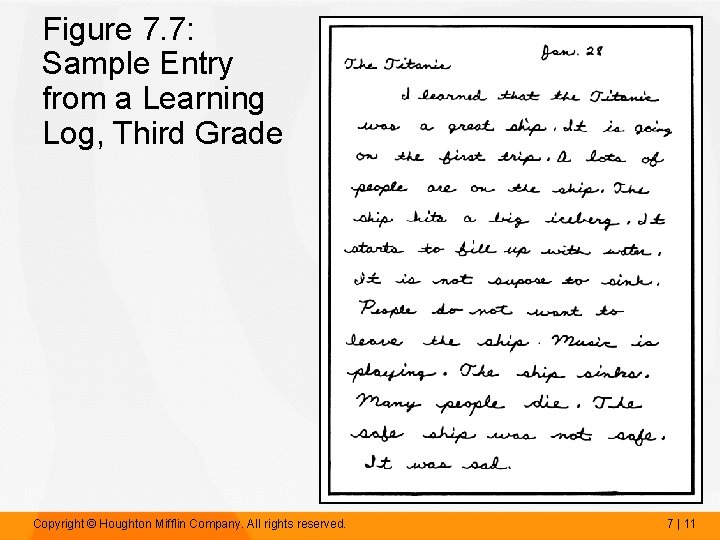 Figure 7.7:
Sample Entry
from a Learning
Log, Third Grade
Jan. 28
The Titanic
I learned that the Titanic
was a great ship. It is going
on the first trip. A lots of
people are on the ship. The
ship hits a big iceberg. It
starts to fill up with water.
It is not supose to sink.
People do not want to
leave the ship. Music is
playing. The ship sinks.
Many people die. The
safe ship was not safe.
It was sad.
Copyright © Houghton Mifflin Company. All rights reserved.
7 | 11